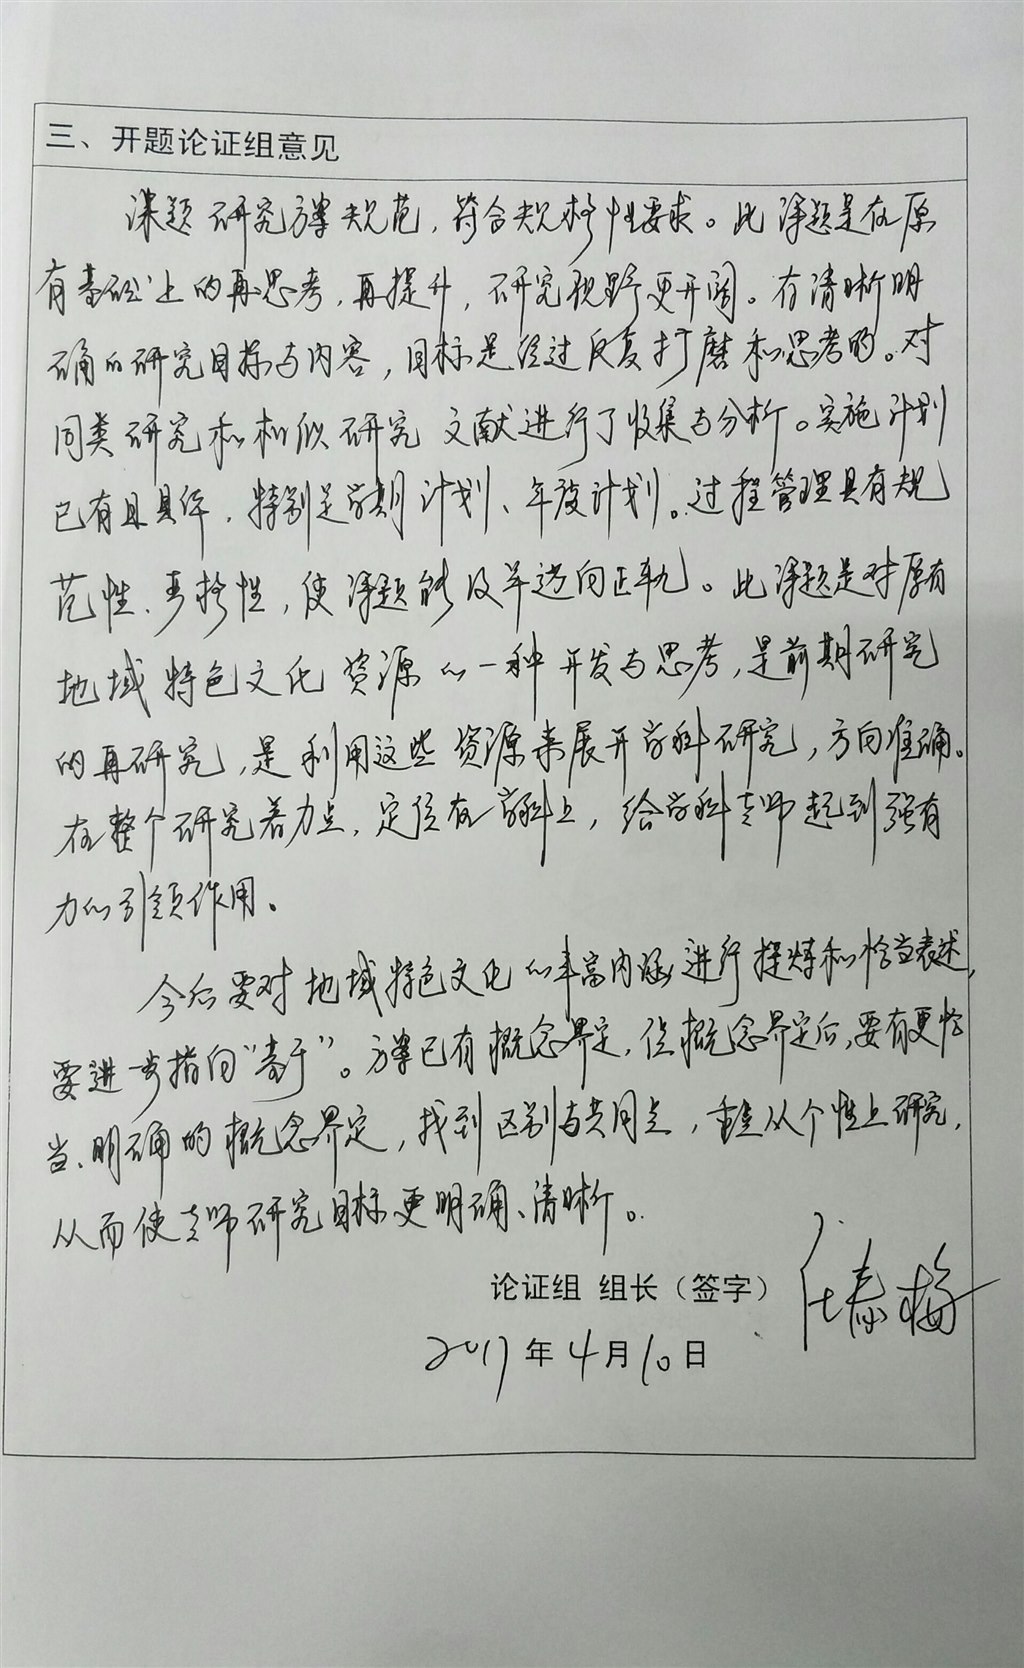 三、开题论证组意见
课题研究方案规范，符合规格性要求。此课题是在原
有基础上的再思考，再提升，研究视野更开阔。有清晰明
确的研究目标与内容，目标是经过反复打磨和思考的。对
同类研究和相似研究文献进行了收集与分析。实施计划
已有且具体，特别是学期计划、年度计划。过程管理具有规
范性、严格性，使课题能及早迈向正轨。此课题是对原有
地域特色文化资源的一种开发与思考，是前期研究
的再研究，是利用这些资源来展开学科研究，方向准确。
在整个研究着力点，定位在学科上，给学科老师起到强有
力的引领作用。
今后要对地域特色文化的丰富内涵进行提炼和恰当表述，
要进一步指向“基于”。方案已有概念界定，但概念界定后，要有更恰
当、明确的概念界定，找到区别与共同点，重点从个性上研究，
从而使老师研究目标更明确、清晰。
论证组 组长（签字）
2017年4月10日